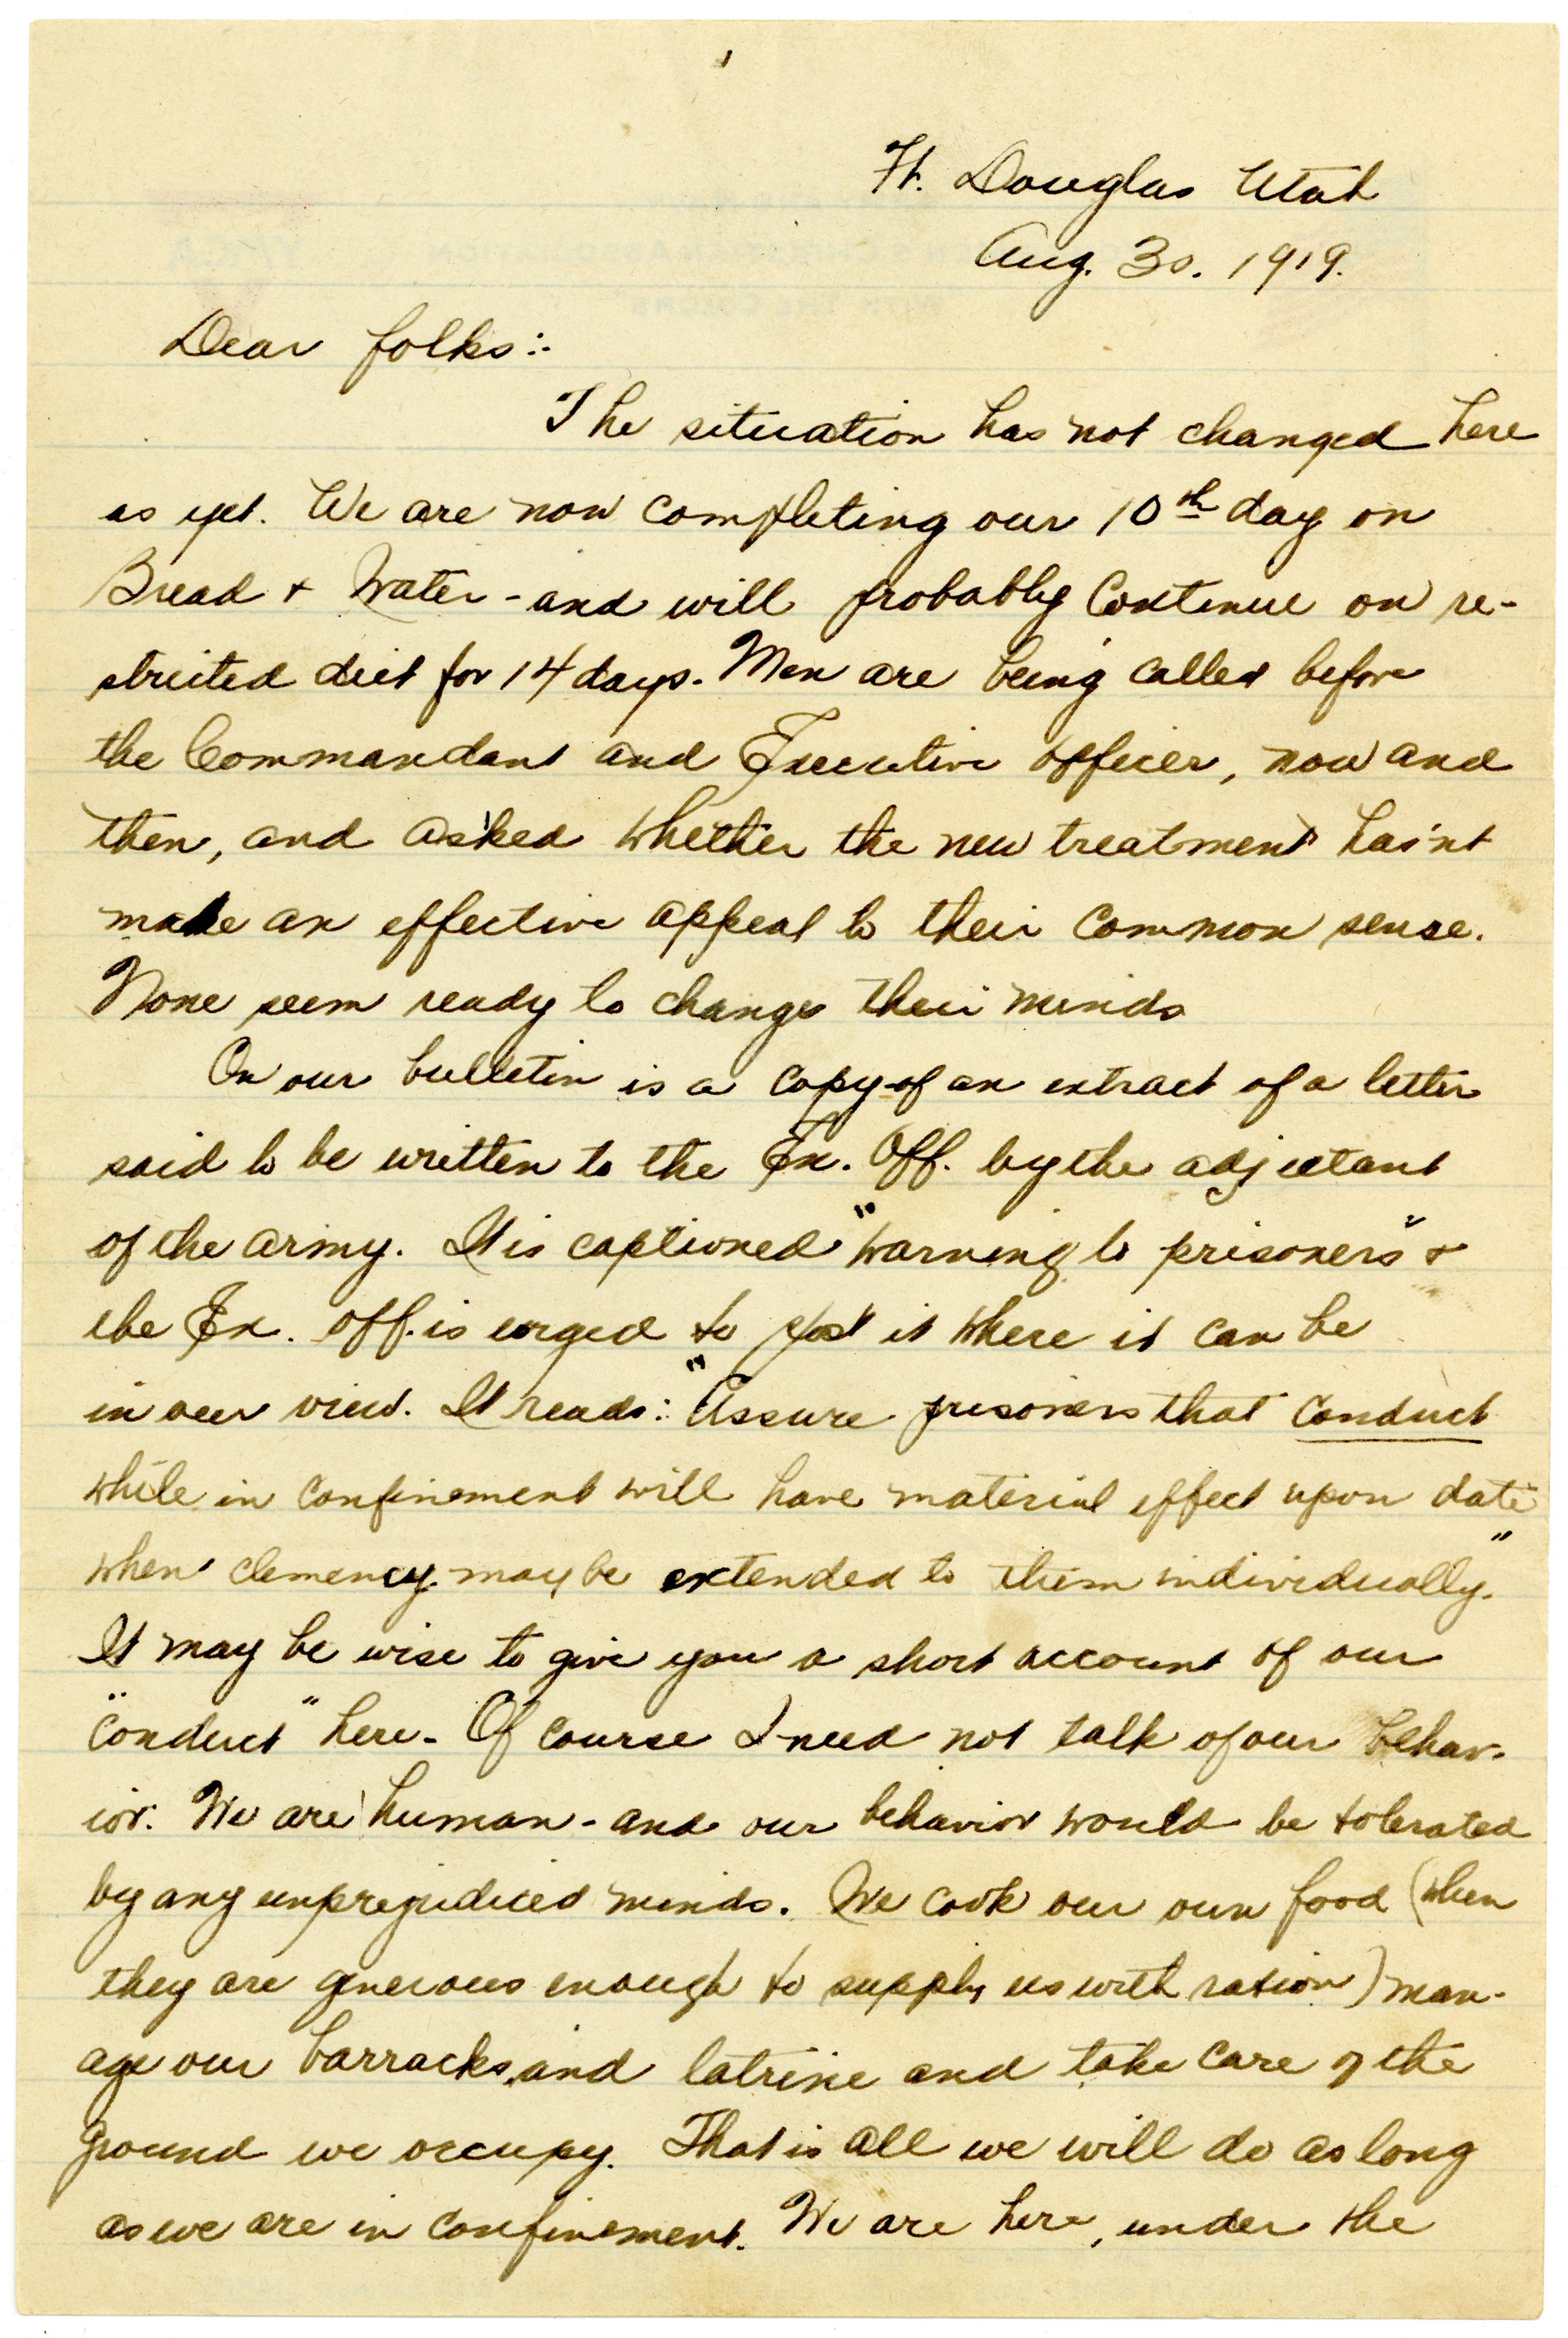 1
Ft. Douglas Utah
Aug. 30. 1919.
Dear folks:-
The situation has not changed here
as yet. We are now completing our 10th day on
Bread + Water - and will probably continue on re-
stricted diet for 14 days. Men are being called before
the Commandant and Executive officer, now and
then, and asked whether the new treatment has'nt
made an effective appeal to their common sense.
None seem ready to change their minds
On our bulletin is a copy of an extract of a letter
said to be written to the Ex. Off. by the adjutant
of the army. It is captioned "Warning to prisoners" +
the Ex. off. is urged to post it where it can be
in our view. It reads: "Assure prisoners that conduct
while in confinement will have material effect upon date
when clemency may be extended to them individually."
It may be wise to give you a short account of our
"conduct" here - Of course I need not talk of our behav-
ior. We are human - and our behavior would be tolerated
by any unprejudiced minds. We cook our own food (when
they are generous enough to supply us with ration) man-
age our barracks and latrine and take care of the
ground we occupy. That is all we will do as long
as we are in confinement. We are here, under the